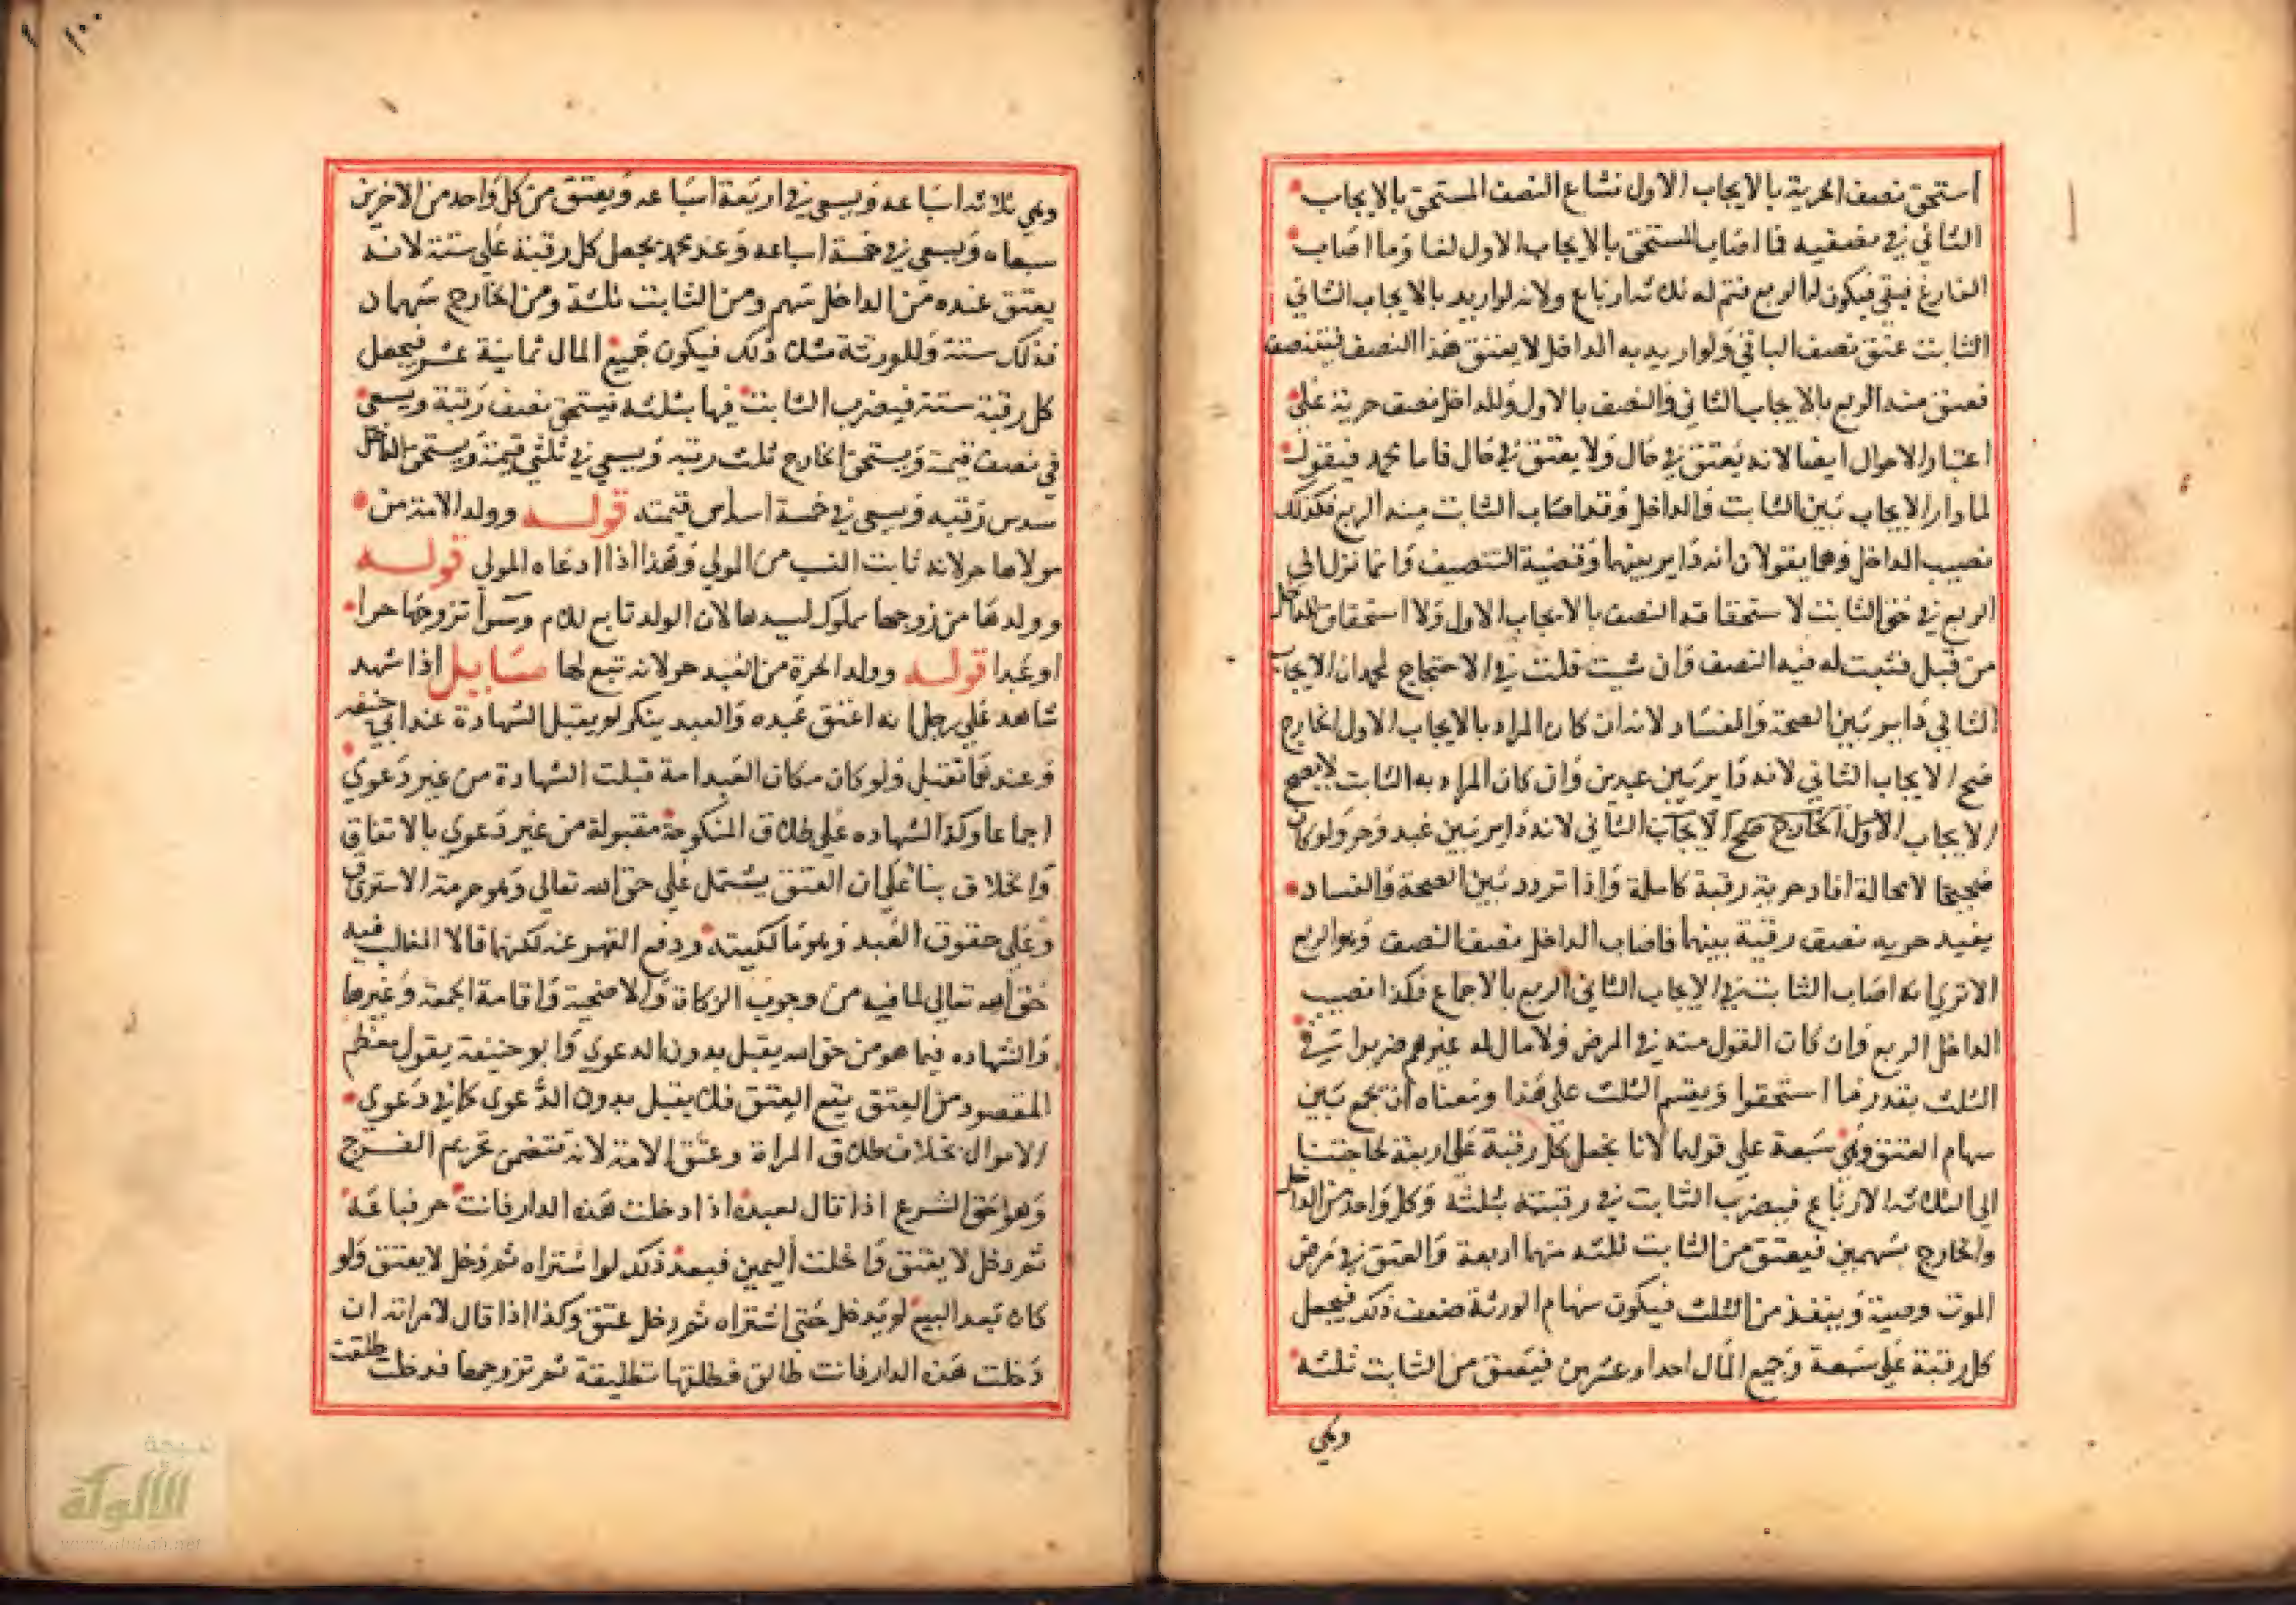 استحق نصف الحرية بالايجاب الاول نشاع النصف المستحق بالايجاب
الثاني في نصفيه فما اصاب المستحق بالايجاب الاول لغا وما اصاب
الفارغ فبقي فيكون له الربع فتم له ثلاثه ارباع ولانه لو اريد بالايجاب الثاني
الثابت عتق نصف الباقي ولو اريد به الداخل لا يعتق هذا النصف فيتنصف
فعتق منه الربع بالايجاب الثاني والنصف بالاول وللداخل نصف حرية علي
اعتبار الاحوال ايضا لانه يعتق في حال ولا يعتق في حال فاما محمد فيقول
لما دار الايجاب بين الثابت والداخل وقد اصاب الثابت منه الربع فكذلك
نصيب الداخل وهما يقولان انه داير بينهما وقضية التنصيف وانما نزل الي
الربع في حق الثابت لاستحقاقه النصف بالايجاب الاول ولا استحقاق للداخل
من قبل فثبت له فيه النصف وان شيت قلت في الاحتجاج لمحمد ان الايجاب
الثاني داير بين الصحة والفساد لانه ان كان المراد بالايجاب الاول الخارج
صح الايجاب الثاني لانه داير بين عبدين وان كان المراد به الثابت لا يصح
الايجاب الاول الخارج صح الايجاب الثاني لانه داير بين عبد وحر ولو كان
صحيحا لا محالة افاد حرية رقبة كاملة واذا تردد بين الصحة والفساد
يفيد حريه نصف رقبة بينهما فاصاب الداخل نصف النصف وهو الربع
الا تري انه اصاب الثابت في الايجاب الثاني الربع بالاجماع فكذا نصيب
الداخل الربع وان كان القول منه في المرض ولا مال له غيرهم ضربوا في
الثلث بقدر ما استحقوا ويقسم الثلث علي هذا ومعناه ان يجمع بين
سهام العتق وهي سبعة علي قولهما لانا نجعل كل رقبة علي اربعة لحاجتنا
الي الثلاثه الارباع فيضرب الثابت في رقبته بثلثة وكل واحد من الداخل
والخارج بسهمين فيعتق من الثابت ثلثه منها اربعة والعتق في مرض
الموت وصية وينفذ من الثلث فيكون سهام الورثة ضعف ذلك فيجعل
كل رقبة علي سبعة وجميع المال احدا وعشرين فيعتق من الثابت ثلثه
وهي
وهي ثلاثه اسباعه ويسعي في اربعة اسباعه ويعتق من كل واحد من الاخرين
سبعاه ويسعي في خمسة اسباعه وعند محمد يجعل كل رقبة علي ستة لانه
يعتق عنده من الداخل سهم ومن الثابت ثلثة ومن الخارج سهمان
فذلك ستة وللورثة مثلا ذلك فيكون جميع المال ثمانية عشر فيجعل
كل رقبة ستة فيضرب الثابت فيها بثلثه فيستحق نصف رقبة ويسعي
في نصف قيمته ويستحق الخارج ثلث رقبه ويسعي في ثلثي قيمته ويستحق الداخل
سدس رقبه ويسعي في خمسة اسداس قيمته قوله وولد الامة من
مولاها حر لانه ثابت النسب من المولي وهذا اذا ادعاه المولي قوله
وولدها من زوجها مملوك لسيدها لان الولد تابع للام وسوا تزوجها حرا
او عبدا قوله وولد الحرة من العبد حر لانه تبع لها مسايل اذا شهد
شاهد علي رجل انه اعتق عبده والعبد ينكر لم يقبل الشهادة عند ابي حنيفه
وعندهما تقبل ولو كان مكان العبد امة قبلت الشهادة من غير دعوي
اجماعا وكذا الشهاده علي طلاق المنكوحة مقبولة من غير دعوي بالاتفاق
والخلاف بناء علي ان العتق يشتمل علي حق الله تعالي وهو حرمة الاسترقاق
وعلي حقوق العبد وهو مالكيته ودفع القهر عنه لكنهما قالا المغلب فيه
حق الله تعالي لما فيه من وجوب الزكاة والاضحية واقامة الجمعة وغيرها
والشهاده فيما هو من حق الله يقبل بدون الدعوي وابو حنيفة يقول معظم
المقصود من العتق يقع العتق فلا يقبل بدون الدعوي كما في دعوي
الاموال بخلاف طلاق المراة وعتق الامة لانه تتضمن تحريم الفرج
وهو حق الشرع اذا قال لعبده اذا دخلت هذه الدار فانت حر فباعه
ثم دخل لا يعتق وانحلت اليمين فبعد ذلك لو اشتراه ثم دخل لا يعتق ولو
كان بعد البيع لم يدخل حتي اشتراه ثم دخل عتق وكذا اذا قال لامراته ان
دخلت هذه الدار فانت طالق فطلقها تطليقة ثم تزوجها فدخلت طلقت
١٠٠
الألوكة
www.alukah.net